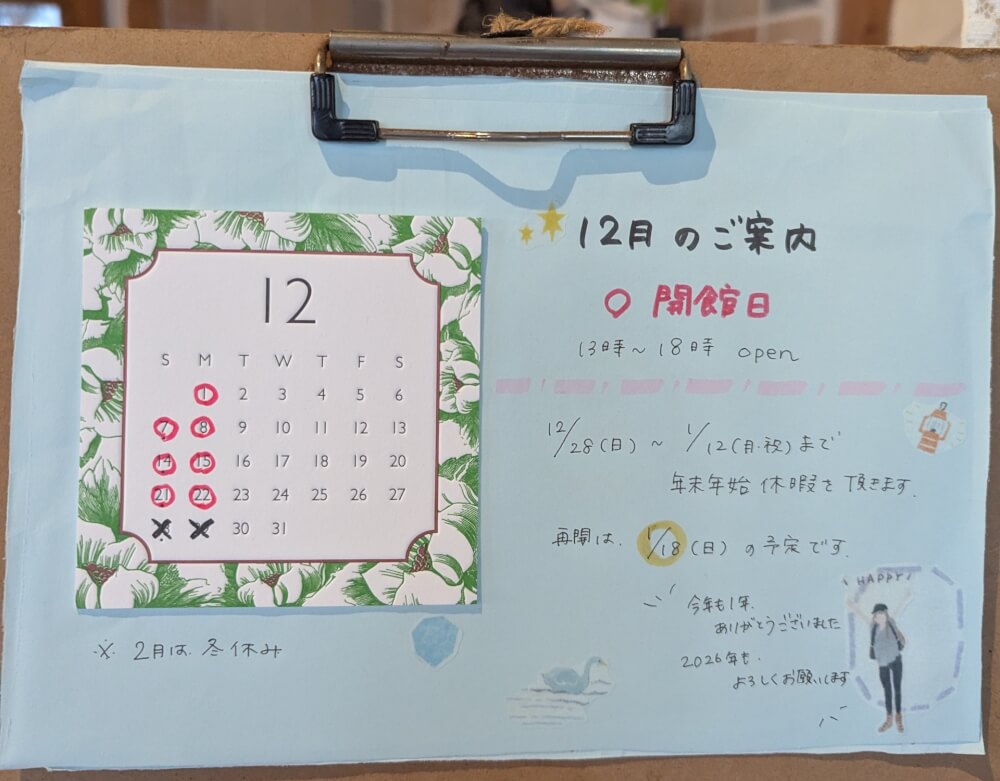 12
S M T W T F S
1 2 3 4 5 6
7 8 9 10 11 12 13
14 15 16 17 18 19 20
21 22 23 24 25 26 27
30 31
※ 2月は冬休み
12月のご案内
○ 開館日
13時〜18時 open
12/28(日)〜 1/12(月・祝)まで
年末年始休暇を頂きます.
再開は、 1/18(日)の予定です.
今年も1年、
ありがとうございました
2026年も、
よろしくお願いします
HAPPY